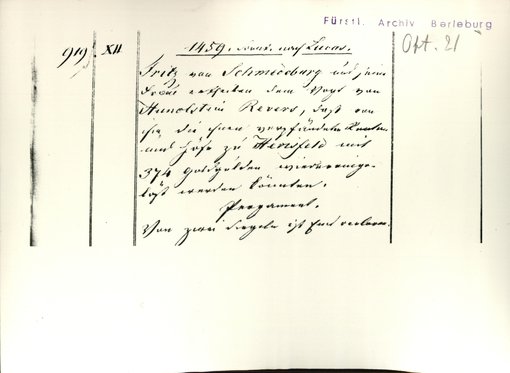 Fürstl. Archiv Berleburg
919. XII
1459. nach Lucas.
Okt. 21
Fritz von Schmidburg und seine
Frau dem Vogt von
Hunolstein Revers, daß von
sie die ihnen verpfändeten Renten
und Höfe zu Hensfeld mit
374 Goldgülden wiedereinge-
löst werden könnten.
Pergament.
Von zwei Siegeln ist Eins verloren.